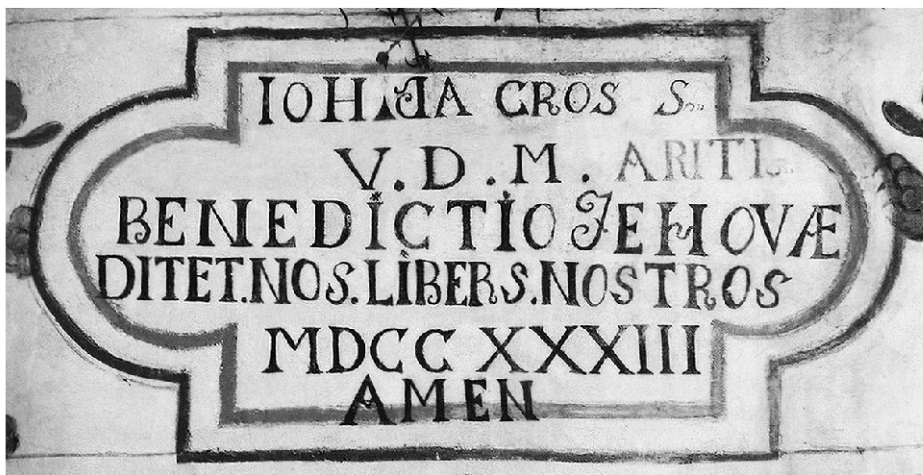 IOH. JA GROS S
V. D. M. ARITI
BENEDICTIO JEHOVÆ
DITET. NOS. LIBERS. NOSTROS
MDCC XXXIII
AMEN